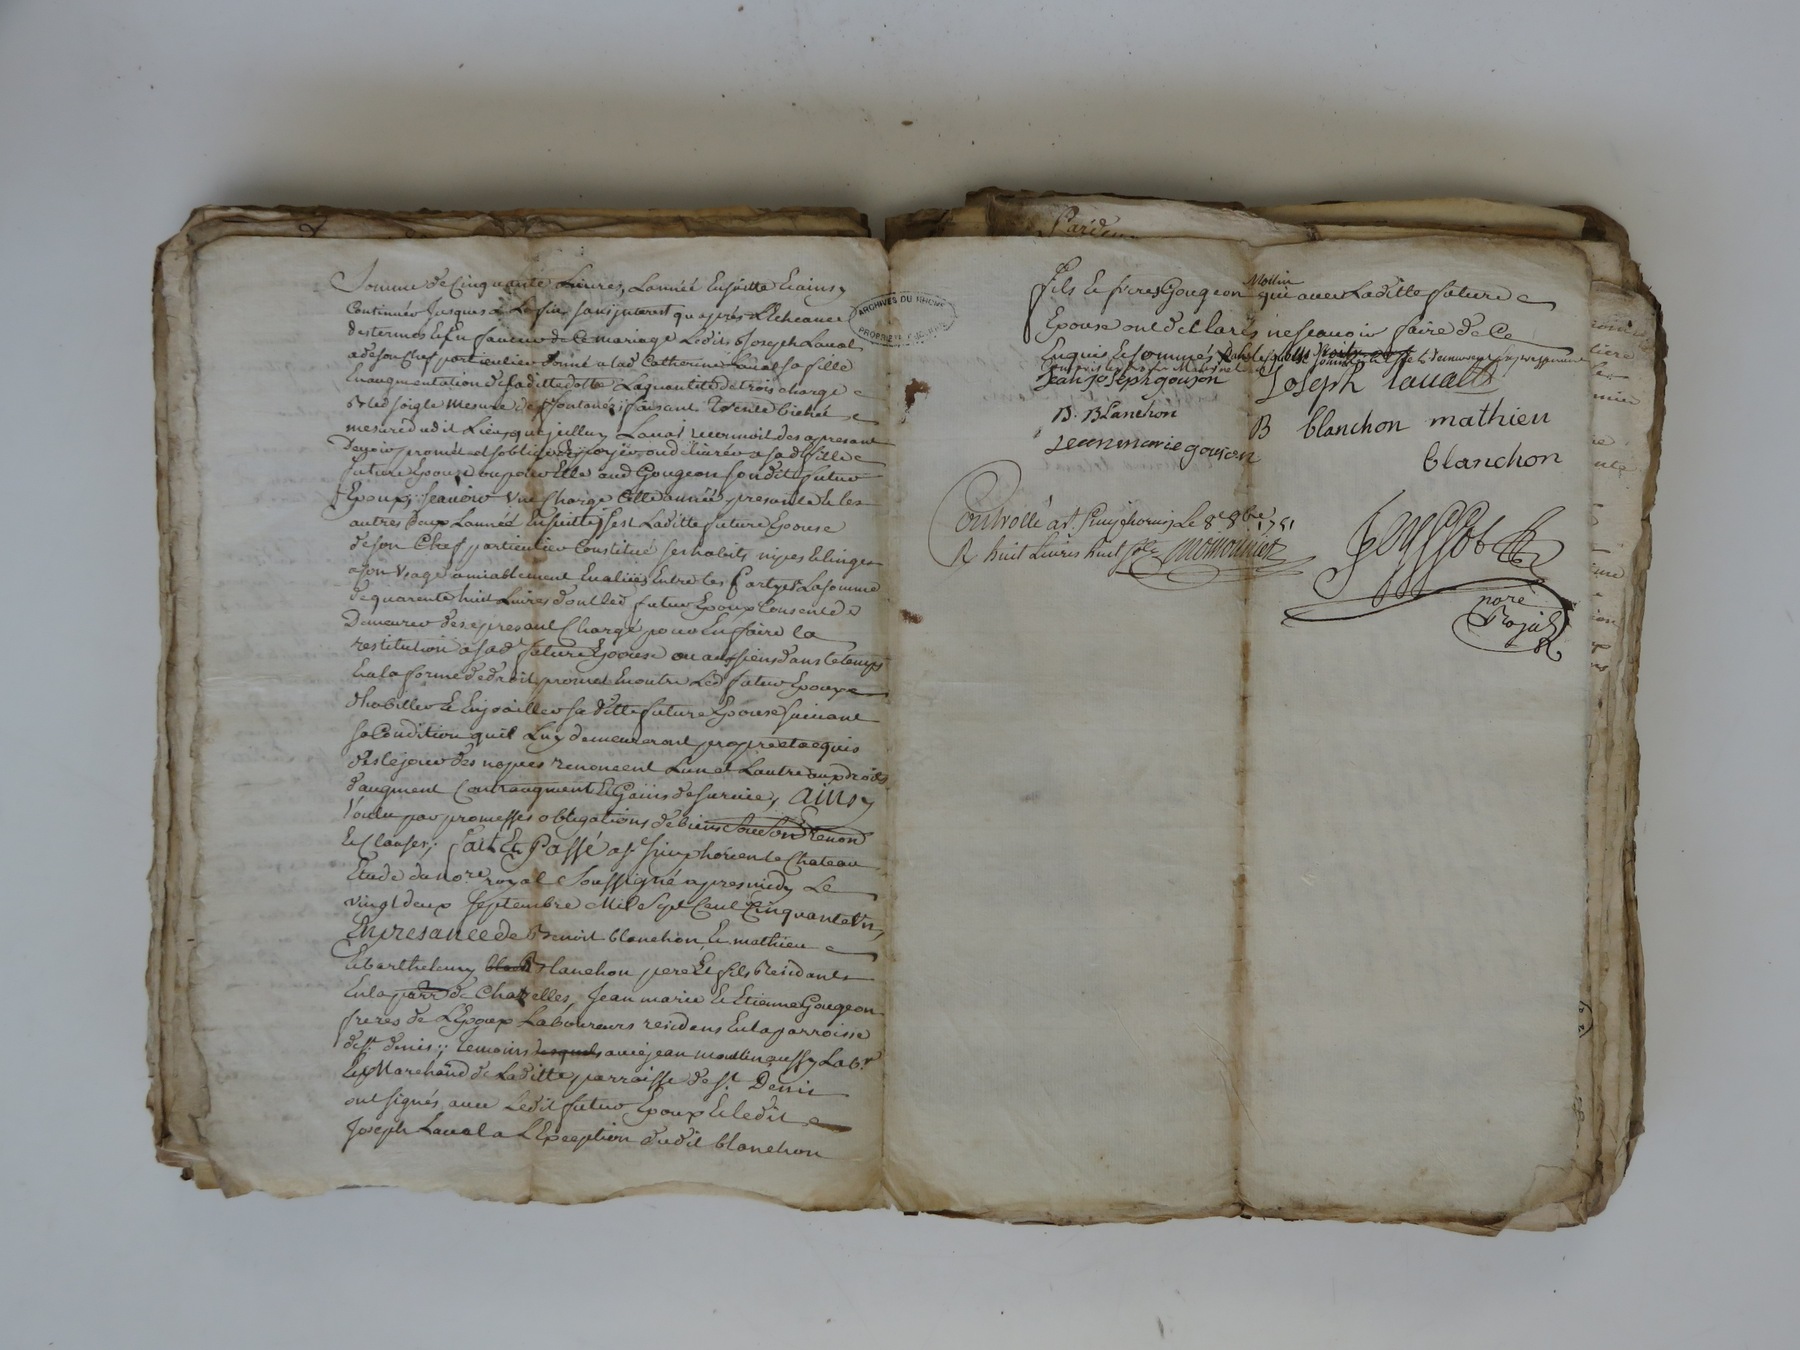 Somme de Cinquante Livres Lannée Ensuitte Et ainsy
Continuer Jusques a La fin sans jnterest qu apres L Echeance
des termes Et En faveur de Ce mariage Ledit Joseph Laval
a de son Chef particulier donné a lad Catherine Laval sa fille
En augmentation de sa ditte dotte La quantité de trois charge
Bled soigle mesure de faisant Trente bichet
mesure du dit Lieu Laval des apresant
promet et soblige de payer ou delivrer a sad fille
future Epouse ou pour Elle aud Gougeon son dit futur
Epoux; scavoir Une Charge Cette année presente Et les
autres deux Lannée Ensuitte; Sest Laditte future Epouse
de son Chef particulier Constitué ses habits nipes Et linges
a son Usage amiablement Evalüés Entre les Partyes La somme
de quarente huit Livres dont led futur Epoux Consent de
Demeurer des apresant Chargé pour En faire la
restitution a sad future Epouse ou aux siens dans le temps
En la forme de droit, promet En outre Led futur Epoux
d'habiller Et Enjoailler sa ditte future Epouse suivant
sa Condition quil Luy demeureront propre et acquis
des le jour des nopces renoncent Lun et Lautre aux droits
d'augment Contraugment Et Gains de survie, Ainsy
Voulu par promesses obligations de biens renon
Et Clauses; Fait Et Passé a St Simphorien le Chateau
Etude du nore royal Soussigné apres midy Le
vingt deux Septembre Mil Sept Cent Cinquante Un,
En presance de Benoit blanchon, Et mathieu
Et barthelemy Blanchon pere Et fils Residants
En la parr de Chazelles, Jean marie Et Etienne Gougeon
freres de L'Epoux Laboureurs residans En la parroisse
de St denis; temoins avec jean moullin aussy Labr
Et Marchand de Laditte parroisse de St Denis
ont signés avec Ledit futur Epoux Et ledit
Joseph Laval a L'Exception dudit blanchon
ARCHIVES DU RHONE
PROPRIETE PUBLIQUE
fils Et freres Gougeon Mollin qui avec Laditte future
Epouse ont declarés ne scavoir faire de Ce
Enquis Et sommés
jean joseph goujon Joseph lauall
B. Blanchon B blanchon mathieu
jean marie goujon blanchon
Controllé a St Simphorien Le 8e 8bre 1751
R huit Livres huit sols
Jeyssot
nore
Royal